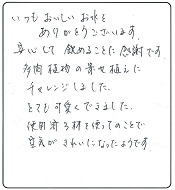 いつもおいしいお水を
ありがとうございます。
安心して飲めることに感謝です
多肉植物の寄せ植えに
チャレンジしました。
とても可愛くできました。
使用済ろ材を使ってのことで
空気がきれいになったようです。